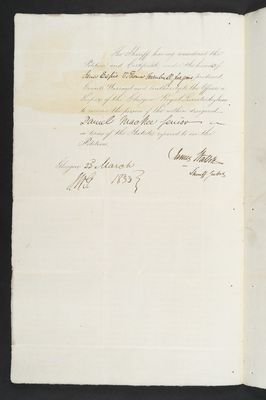 The Sheriff having considered the
Petition and Certificate under the hands of
James Grants Warrant and Authority to the Officer or
Keeper of the Glasgow Royal Lunatic Asylum
to receive the person of the within designed
Daniel MacKee Senior
in terms of the Statute referred to in the
Petition.
Glasgow 23 March
1833